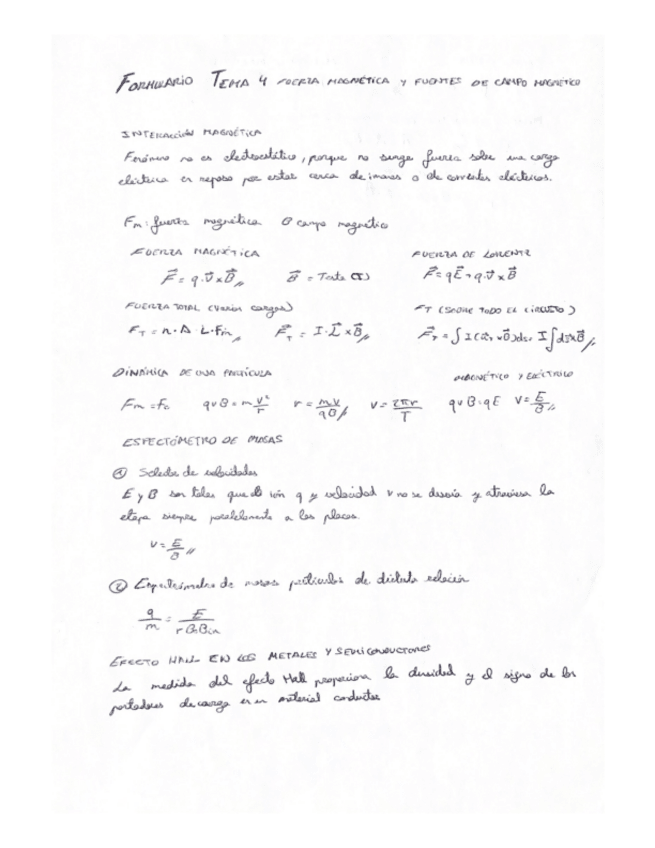 FORMULARIO TEMA 4 FUERZA MAGNÉTICA Y FUENTES DE CAMPO MAGNÉTICO
INTERACCIÓN MAGNÉTICA
Fenómeno no es electroestático, porque no surge fuerza sobre una carga
eléctrica en reposo por estar cerca de imanes o de corrientes eléctricas.
Fm: fuerza magnética B campo magnético
FUERZA MAGNÉTICA FUERZA DE LORENTZ
F⃗ = q·v⃗×B⃗ B⃗ = Tesla (T) F⃗ = qE⃗ + q·v⃗×B⃗
FUERZA TOTAL (varias cargas) FT (SOBRE TODO EL CIRCUITO)
F_T = n·A·L·Fm F⃗_T = I·L⃗×B⃗ F⃗_T = ∫ I(u⃗_T×B⃗)ds = I∫dl⃗×B⃗
DINÁMICA DE UNA PARTÍCULA MAGNÉTICO Y ELÉCTRICO
Fm = Fc qvB = m v²/r r = mv/qB v = 2πr/T qvB = qE v = E/B
ESPECTÓMETRO DE MASAS
① Selector de velocidades
E y B son tales que el ión q y velocidad v no se desvía y atraviesa la
etapa siempre paralelamente a las placas.
v = E/B
② Espectrómetro de masas partículas de distinta relación
q/m = E/(r B₀ Bin)
EFECTO HALL EN LOS METALES Y SEMICONDUCTORES
La medida del efecto Hall proporciona la densidad y el signo de los
portadores de carga en un material conductor